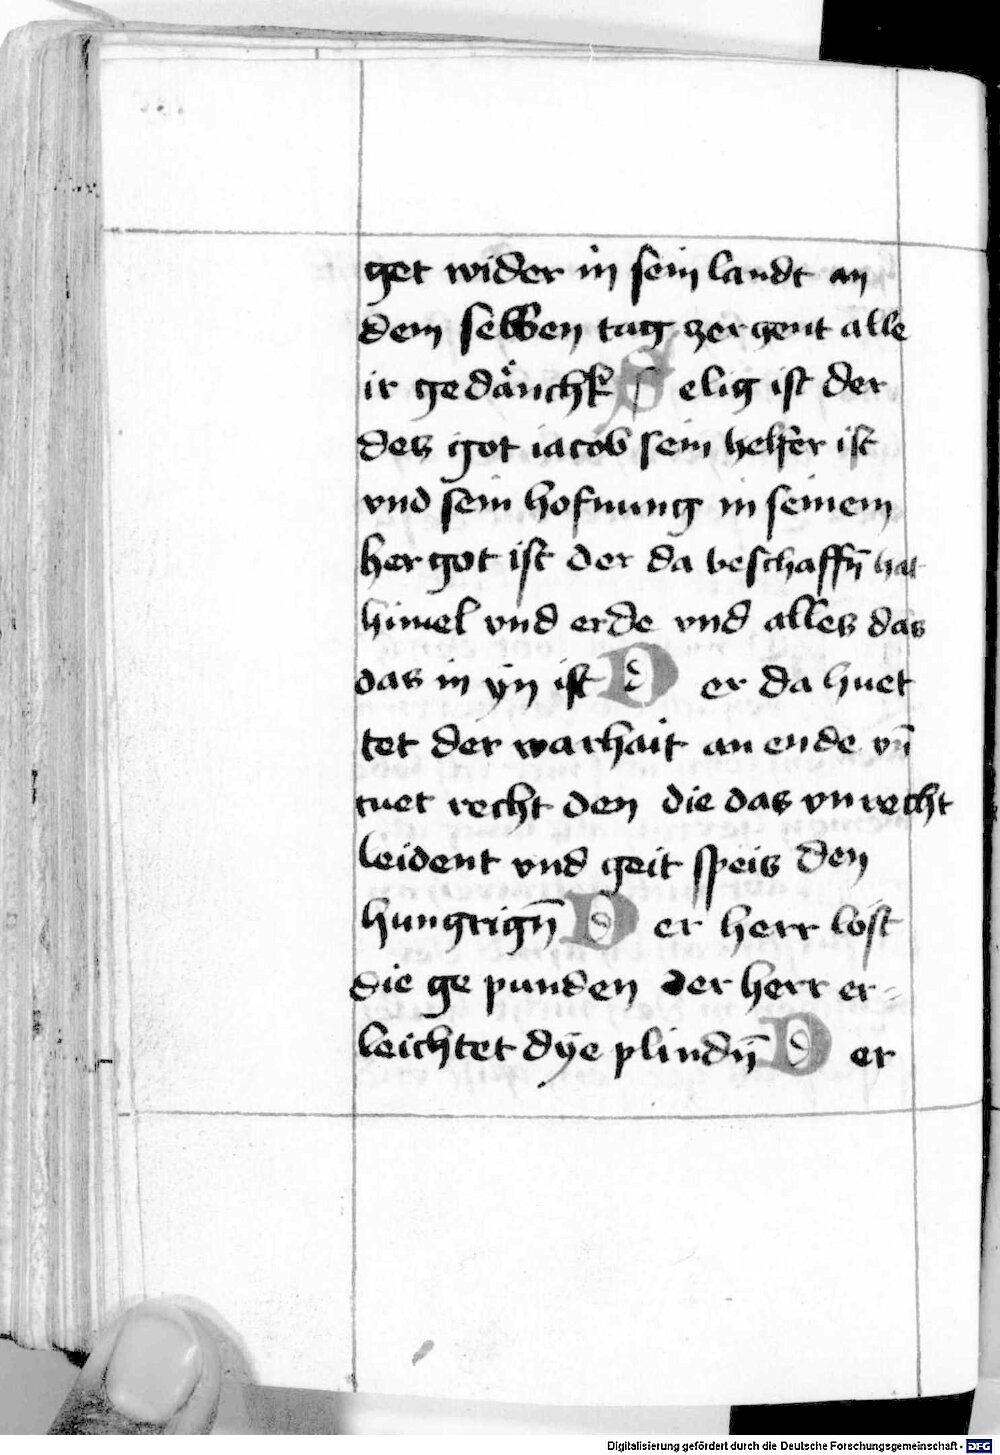 get wider in sein landt an
dem selben tag zergent alle
ir gedänchk Selig ist der
des got iacob sein helfer ist
vnd sein hofnung in seinem
her got ist der da beschaffn̄ hat
himel vnd erde vnd alles das
das in yn ist Der da huet
tet der warhait an ende vn̄
tuet recht den die das vnrecht
leident vnd geit speis den
hungrign̄ Der herr lost
die ge punden der herr er-
leichtet dye plindn̄ Der
Digitalisierung gefördert durch die Deutsche Forschungsgemeinschaft - DFG